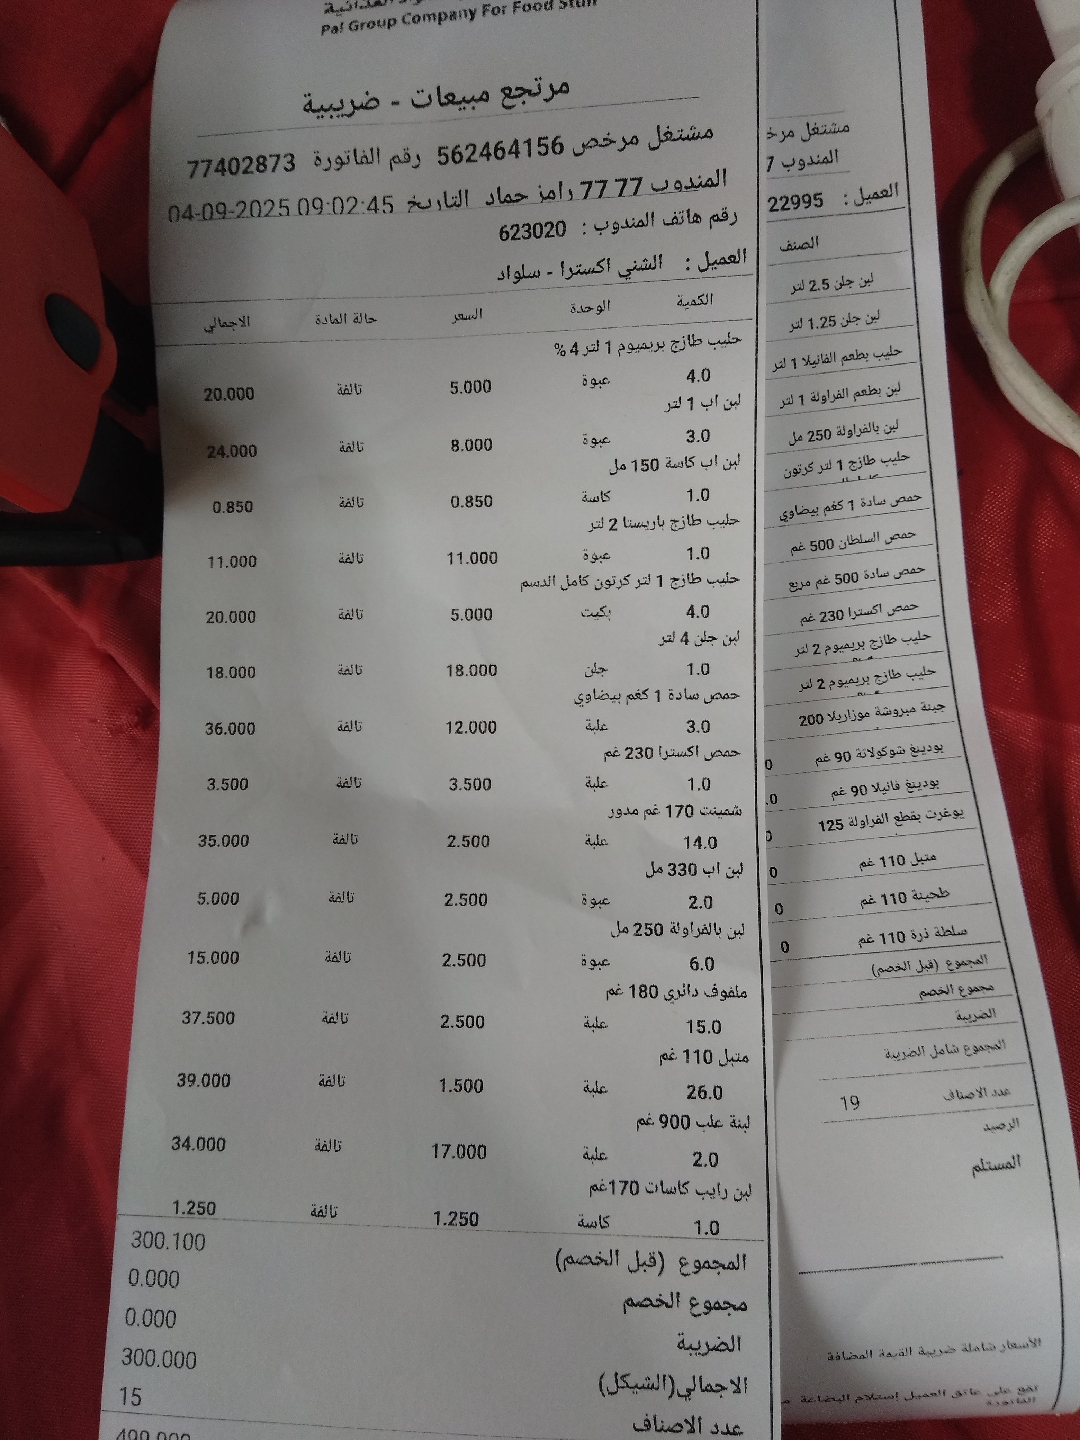 Pal Group Company For Food Stuff
مرتجع مبيعات - ضريبية
مشتغل مرخص 562464156 رقم الفاتورة 77402873
المندوب 77 77 رامز حماد التاريخ 04-09-2025 09:02:45
رقم هاتف المندوب : 623020
العميل : الشني اكسترا - سلواد
الكمية الوحدة السعر حالة المادة الاجمالي
حليب طازج بريميوم 1 لتر 4 %
4.0 عبوة 5.000 تالفة 20.000
لبن اب 1 لتر
3.0 عبوة 8.000 تالفة 24.000
لبن اب كاسة 150 مل
1.0 كاسة 0.850 تالفة 0.850
حليب طازج باريستا 2 لتر
1.0 عبوة 11.000 تالفة 11.000
حليب طازج 1 لتر كرتون كامل الدسم
4.0 بكيت 5.000 تالفة 20.000
لبن جلن 4 لتر
1.0 جلن 18.000 تالفة 18.000
حمص سادة 1 كغم بيضاوي
3.0 علبة 12.000 تالفة 36.000
حمص اكسترا 230 غم
1.0 علبة 3.500 تالفة 3.500
شمينت 170 غم مدور
14.0 علبة 2.500 تالفة 35.000
لبن اب 330 مل
2.0 عبوة 2.500 تالفة 5.000
لبن بالفراولة 250 مل
6.0 عبوة 2.500 تالفة 15.000
ملفوف دائري 180 غم
15.0 علبة 2.500 تالفة 37.500
متبل 110 غم
26.0 علبة 1.500 تالفة 39.000
لبنة علب 900 غم
2.0 علبة 17.000 تالفة 34.000
لبن رايب كاسات 170غم
1.0 كاسة 1.250 تالفة 1.250
المجموع (قبل الخصم) 300.100
مجموع الخصم 0.000
الضريبة 0.000
الاجمالي(الشيكل) 300.000
عدد الاصناف 15
مشتغل مرخ
المندوب 7
العميل : 22995
الصنف
لبن جلن 2.5 لتر
لبن جلن 1.25 لتر
حليب بطعم الفانيلا 1 لتر
لبن بطعم الفراولة 1 لتر
لبن بالفراولة 250 مل
حليب طازج 1 لتر كرتون
حمص سادة 1 كغم بيضاوي
حمص السلطان 500 غم
حمص سادة 500 غم مربع
حمص اكسترا 230 غم
حليب طازج بريميوم 2 لتر
حليب طازج بريميوم 2 لتر
جبنة مبروشة موزاريلا 200
بودينغ شوكولاتة 90 غم 0
بودينغ فانيلا 90 غم .0
يوغرت بقطع الفراولة 125 0
متبل 110 غم 0
طحينة 110 غم 0
سلطة ذرة 110 غم 0
المجموع (قبل الخصم)
مجموع الخصم
الضريبة
المجموع شامل الضريبة
عدد الاصناف 19
الرصيد
المستلم
الأسعار شاملة ضريبة القيمة المضافة
تقع على عاتق العميل إستلام البضاعة
الفاتورة